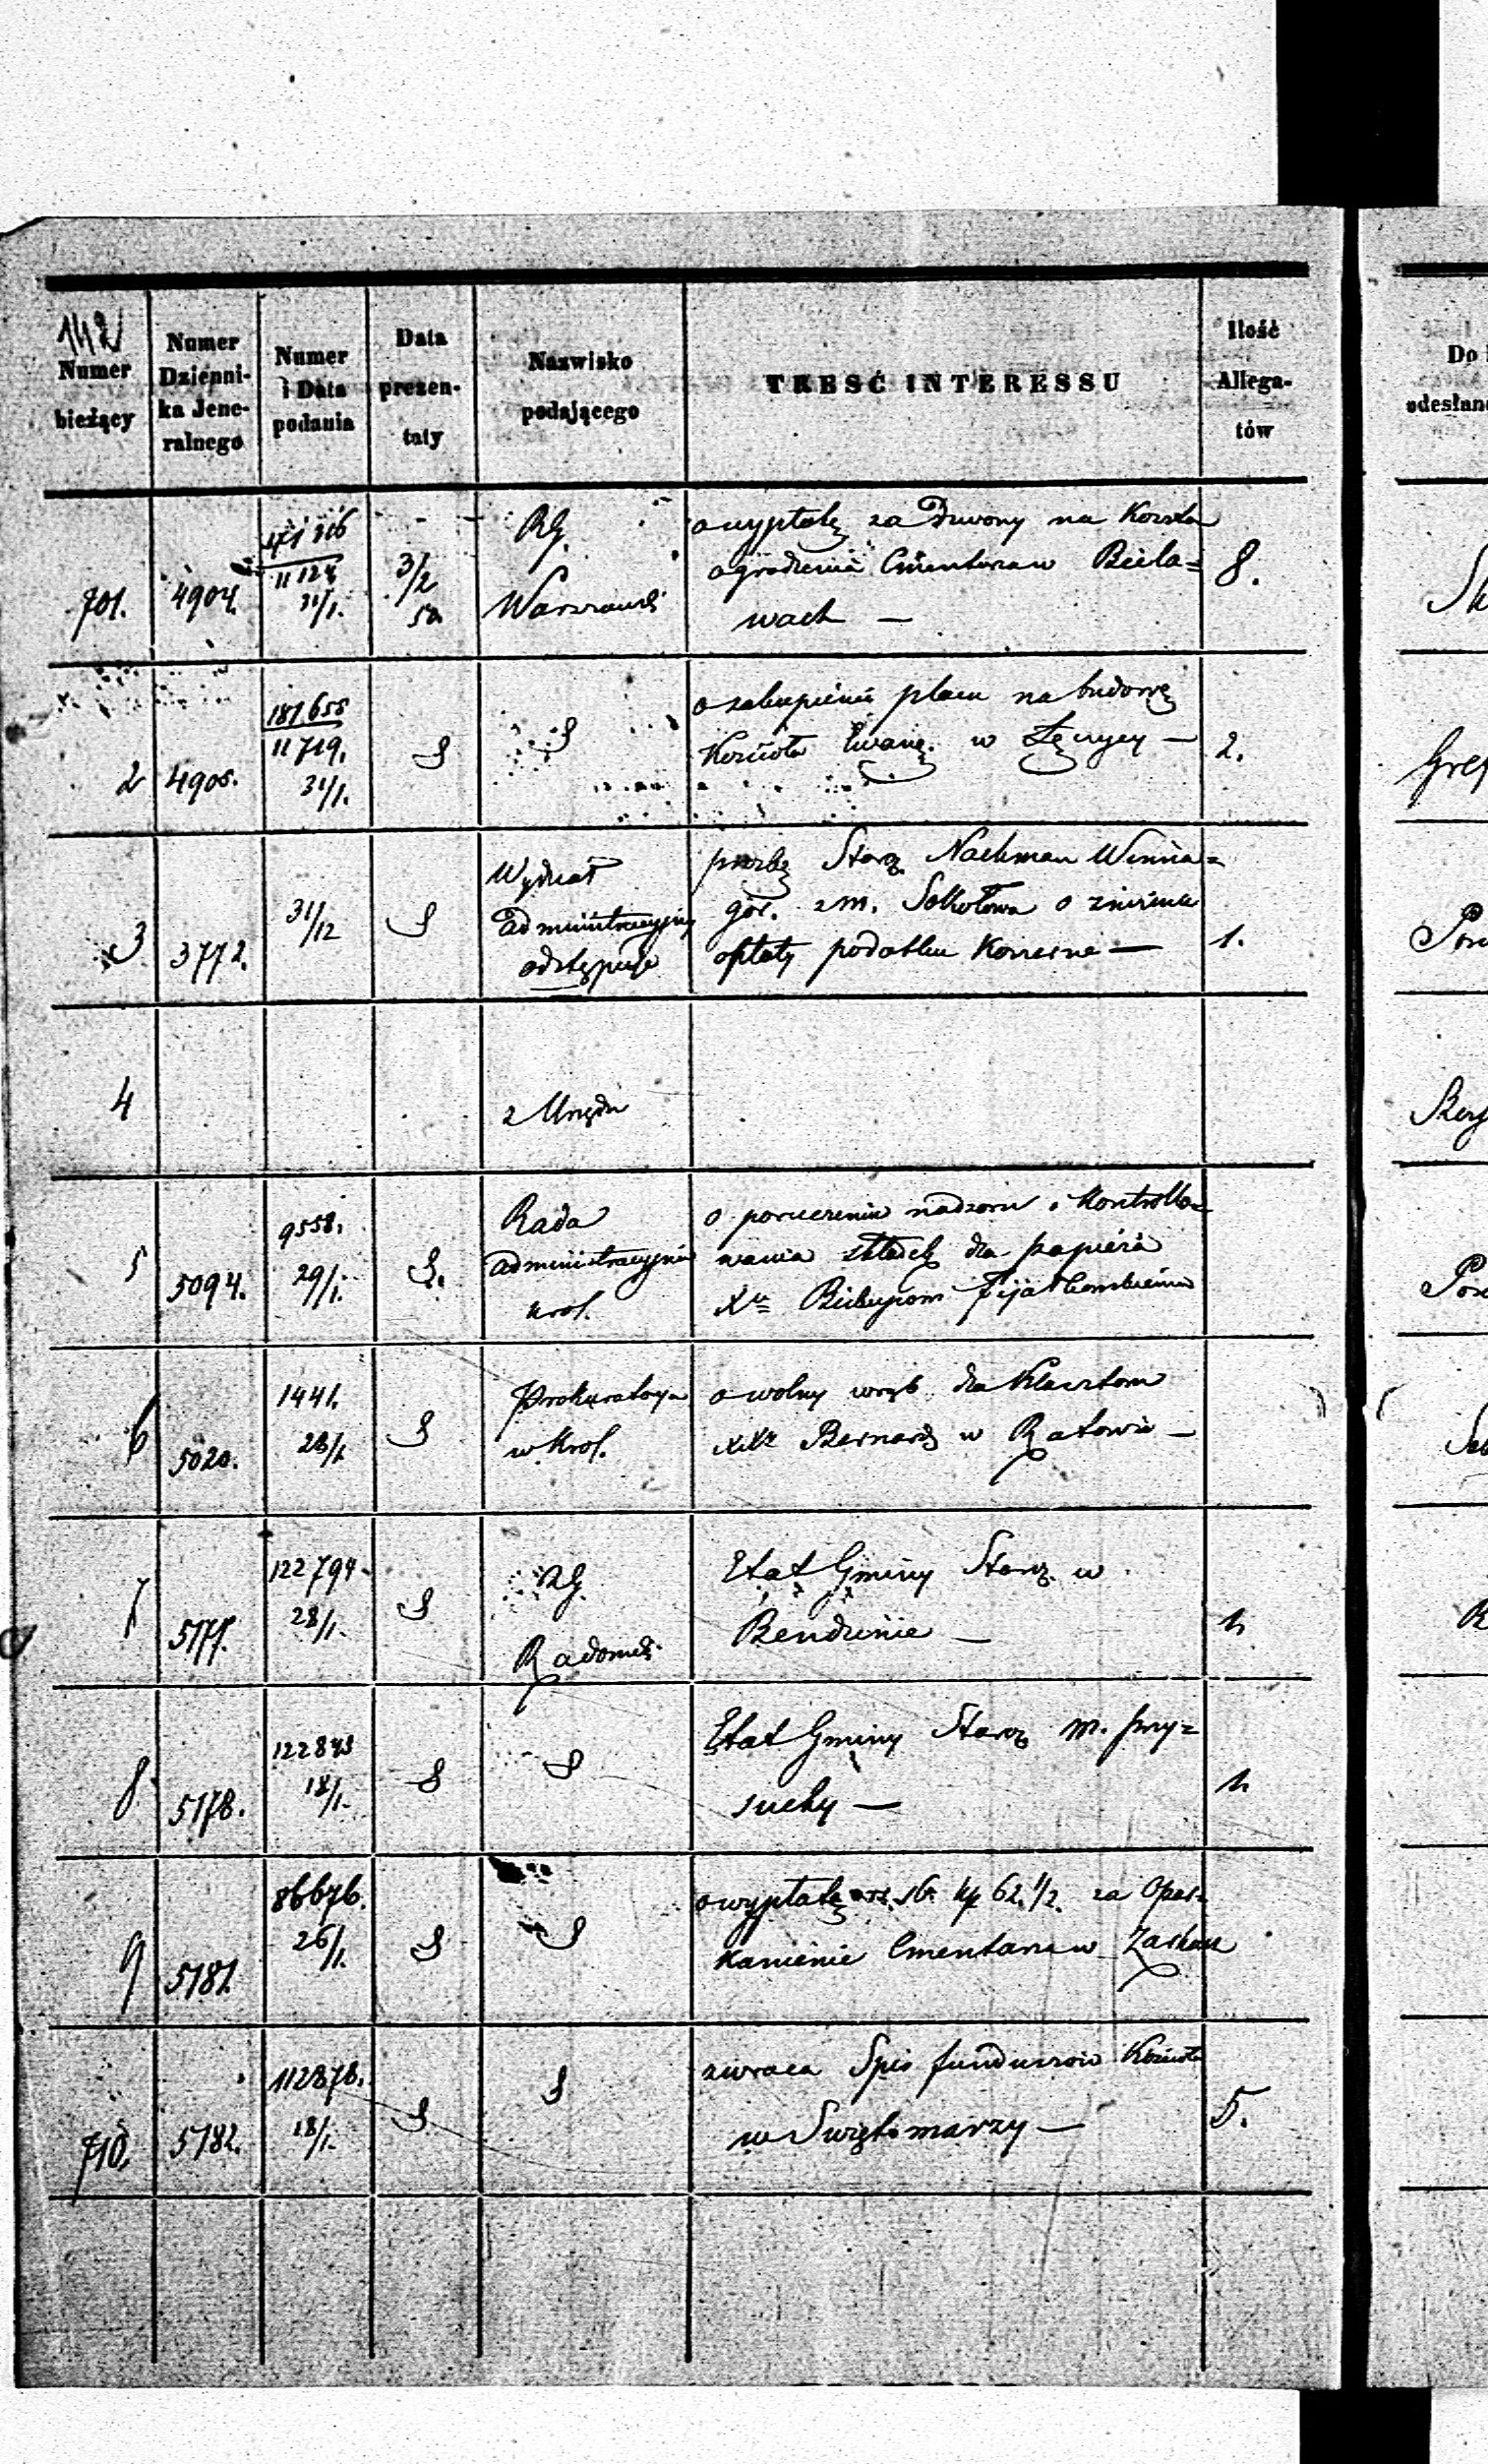 142
Numer
bieżący
Numer
Dzienni-
ka Jene-
ralnego
Numer
i Data
podania
Data
prezen-
taty
Nazwisko
podającego
TREŚĆ INTERESSU
Ilość
Allega-
tów
Do
odesłano
701.
4904.
11124
31/1.
3/2
50.
RG.
Warszawsk:
o wypłatę za Dzwony na
ogrodzenia Cmentarza w Biela=
wach —
8.
2
4905.
187655
11719.
31/1.
o zakupieniu placu na budowę
Kościoła Ewang. w Łęczycy —
2.
3
3772.
31/12
Wydział
Administracyjny
odstępuje
prozbę Starz. Nachman Winna=
gór. z m. Sokołowa o
opłaty podatku Konsens —
1.
4
z Urzędu
5
5094.
9558.
29/1.
Rada
Administracyjna
Krol.
o poruczeniu nadzoru i Kontrollo=
wania składek dla papieża
Xu Biskupom Fijałkowskiemu
6
5020.
1441.
28/1
Prokuratorya
w Krol.
o wolny wrąb dla Klasztoru
XXz Bernard w Ratowie —
7
5177.
122794
28/1.
RG.
Radomsk:
Etat Gminy Starz. w
Bendzinie —
1.
8
5178.
18/1.
Etat Gminy Starz. m. Przy=
suchy —
1.
9
5181.
86676.
26/1.
o wypłatę rs. 16. kp 62.1/2. za Opar=
kanienie Cmentarza w
710.
5182.
112878.
18/1.
zwraca Spis funduszów Kościoła
w Swiętomarzy —
5.